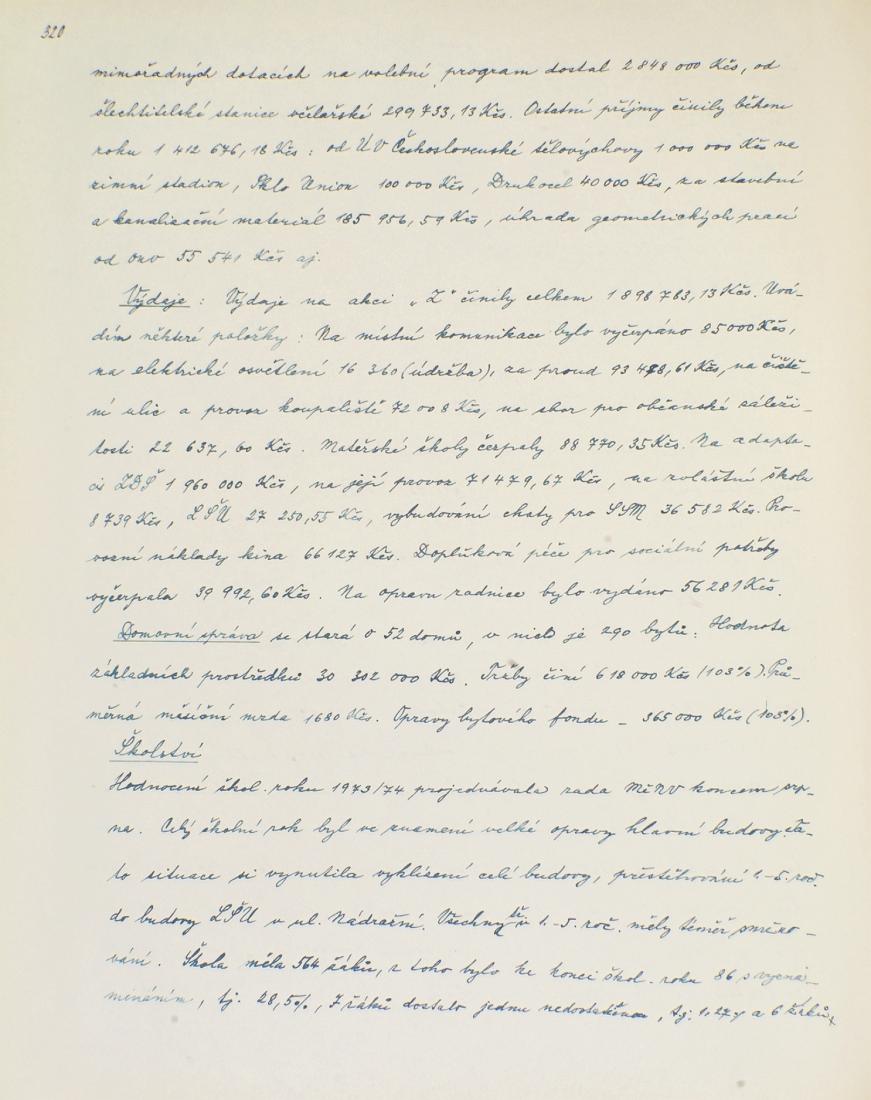 320
mimořádných dotacích na volební program dostal 2 848 000 Kčs, od
šlechtitelské stanice včelařské 299 733,13 Kčs. Ostatní příjmy činily během
roku 1 412 676,18 Kčs : od ÚV Československé tělovýchovy 1 000 000 Kčs na
zimní stadion, Sklo Union 100 000 Kčs, Drukocel 40 000 Kčs, za stavební
a kanalizační materiál 185 956,59 Kčs, úhrada geometrických prací
od ONV 55 541 Kčs aj.
Výdaje : Výdaje na akci „Z" činily celkem 1 898 783,13 Kčs. Uvá-
dím některé položky : Na místní komunikace bylo vyčerpáno 85 000 Kčs,
na elektrické osvětlení 16 360 (údržba), za proud 93 478,61 Kčs, na čiště-
ní ulic a provoz koupaliště 72 008 Kčs, na sbor pro občanské záleži-
tosti 22 637,60 Kčs. Mateřské školy čerpaly 88 770,35 Kčs. Na adapta-
ci ZDŠ 1 960 000 Kčs, na její provoz 71 479,67 Kčs, na zvláštní školu
8 739 Kčs, LŠU 27 250,55 Kčs, vybudování chaty pro SSM 36 582 Kčs. Pro-
vozní náklady kina 66 127 Kčs. Doplňková péče pro sociální potřeby
vyčerpala 39 992,60 Kčs. Na opravu radnice bylo vydáno 56 281 Kčs.
Domovní správa se stará o 52 domů, v nichž je 290 bytů. Hodnota
základních prostředků 30 302 000 Kčs. Tržby činí 618 000 Kčs (103%). Prů-
měrná měsíční mzda 1680 Kčs. Opravy bytového fondu - 365 000 Kčs (103%).
Školství
Hodnocení škol. roku 1973/74 projednávala rada MěNV koncem srp-
na. Celý školní rok byl ve znamení velké opravy hlavní budovy. Ta-
to situace si vynutila vyklizení celé budovy, přestěhování 1.-5. roč.
do budovy LŠU v ul. Nádražní. Všechny tř. v 1.-5. roč. měly téměř směno-
vání. Škola měla 564 žáků, z toho bylo ke konci škol. roku 86 s vyzna-
menáním, tj. 28,5%, 7 žáků dostalo jednu nedostatečnou, tj. 1,27% a 6 žáků